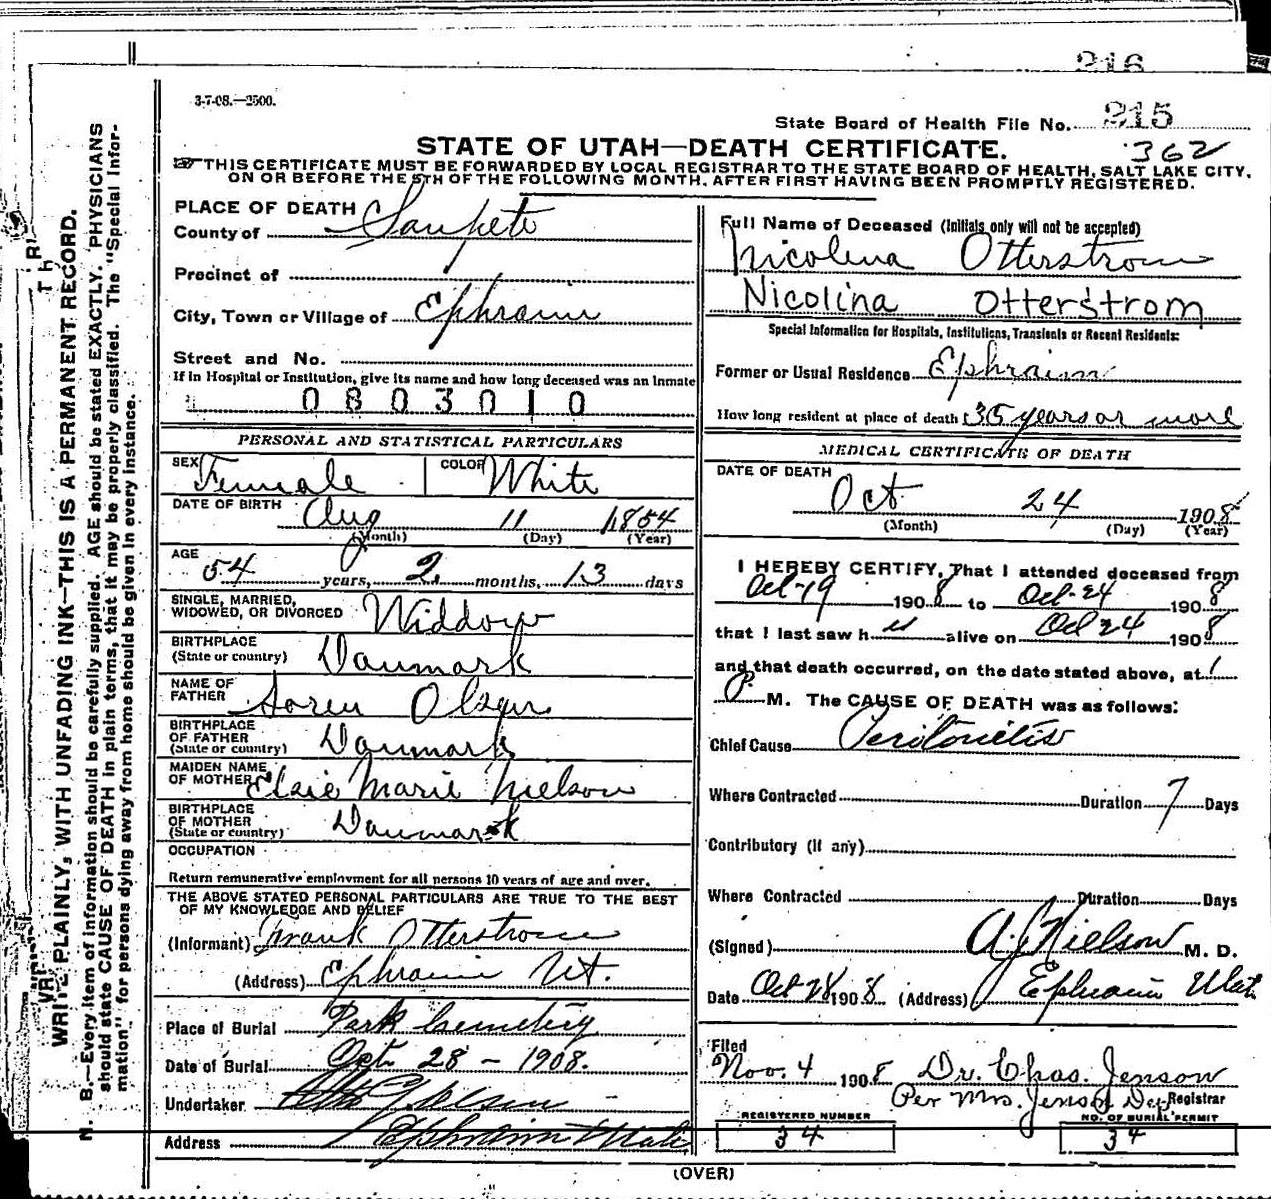 216
3-7-08.—2500.
State Board of Health File No. 215
STATE OF UTAH—DEATH CERTIFICATE.
362
THIS CERTIFICATE MUST BE FORWARDED BY LOCAL REGISTRAR TO THE STATE BOARD OF HEALTH, SALT LAKE CITY,
ON OR BEFORE THE 5TH OF THE FOLLOWING MONTH, AFTER FIRST HAVING BEEN PROMPTLY REGISTERED.
WRITE PLAINLY, WITH UNFADING INK—THIS IS A PERMANENT RECORD.
N. B.—Every item of information should be carefully supplied. AGE should be stated EXACTLY. PHYSICIANS
should state CAUSE OF DEATH in plain terms, that it may be properly classified. The "Special Infor-
mation" for persons dying away from home should be given in every instance.
PLACE OF DEATH
County of Sanpete
Precinct of
City, Town or Village of Ephraim
Street and No.
If in Hospital or Institution, give its name and how long deceased was an Inmate
0803010
PERSONAL AND STATISTICAL PARTICULARS
SEX Female COLOR White
DATE OF BIRTH Aug 11 1854
(Month) (Day) (Year)
AGE 54 years, 2 months, 13 days
SINGLE, MARRIED,
WIDOWED, OR DIVORCED Widdow
BIRTHPLACE
(State or country) Danmark
NAME OF
FATHER Soren Olsen
BIRTHPLACE
OF FATHER
(State or country) Danmark
MAIDEN NAME
OF MOTHER Elsie Marie Nielson
BIRTHPLACE
OF MOTHER
(State or country) Danmark
OCCUPATION
Return remunerative employment for all persons 10 years of age and over.
THE ABOVE STATED PERSONAL PARTICULARS ARE TRUE TO THE BEST
OF MY KNOWLEDGE AND BELIEF
(Informant) Frank Otterstrom
(Address) Ephraim Ut.
Place of Burial Park Cemetery
Date of Burial Oct 28 - 1908.
Undertaker
Address Ephraim Utah
Full Name of Deceased (Initials only will not be accepted)
Nicolena Otterstrom
Nicolina Otterstrom
Special Information for Hospitals, Institutions, Transients or Recent Residents:
Former or Usual Residence Ephraim
How long resident at place of death? 35 years or more
MEDICAL CERTIFICATE OF DEATH
DATE OF DEATH
Oct 24 1908
(Month) (Day) (Year)
I HEREBY CERTIFY, That I attended deceased from
Oct-19 1908 to Oct-24 1908
that I last saw her alive on Oct 24 1908
and that death occurred, on the date stated above, at 1
P. M. The CAUSE OF DEATH was as follows:
Chief Cause Peritonitis
Where Contracted Duration 7 Days
Contributory (if any)
Where Contracted Duration Days
(Signed) A. J. Nielson M. D.
Date Oct 28 1908 (Address) Ephraim Utah
Filed
Nov. 4 1908 Dr. Chas. Jenson
Per Mrs. Jenson Dep Registrar
REGISTERED NUMBER NO. OF BURIAL PERMIT
34 34
(OVER)